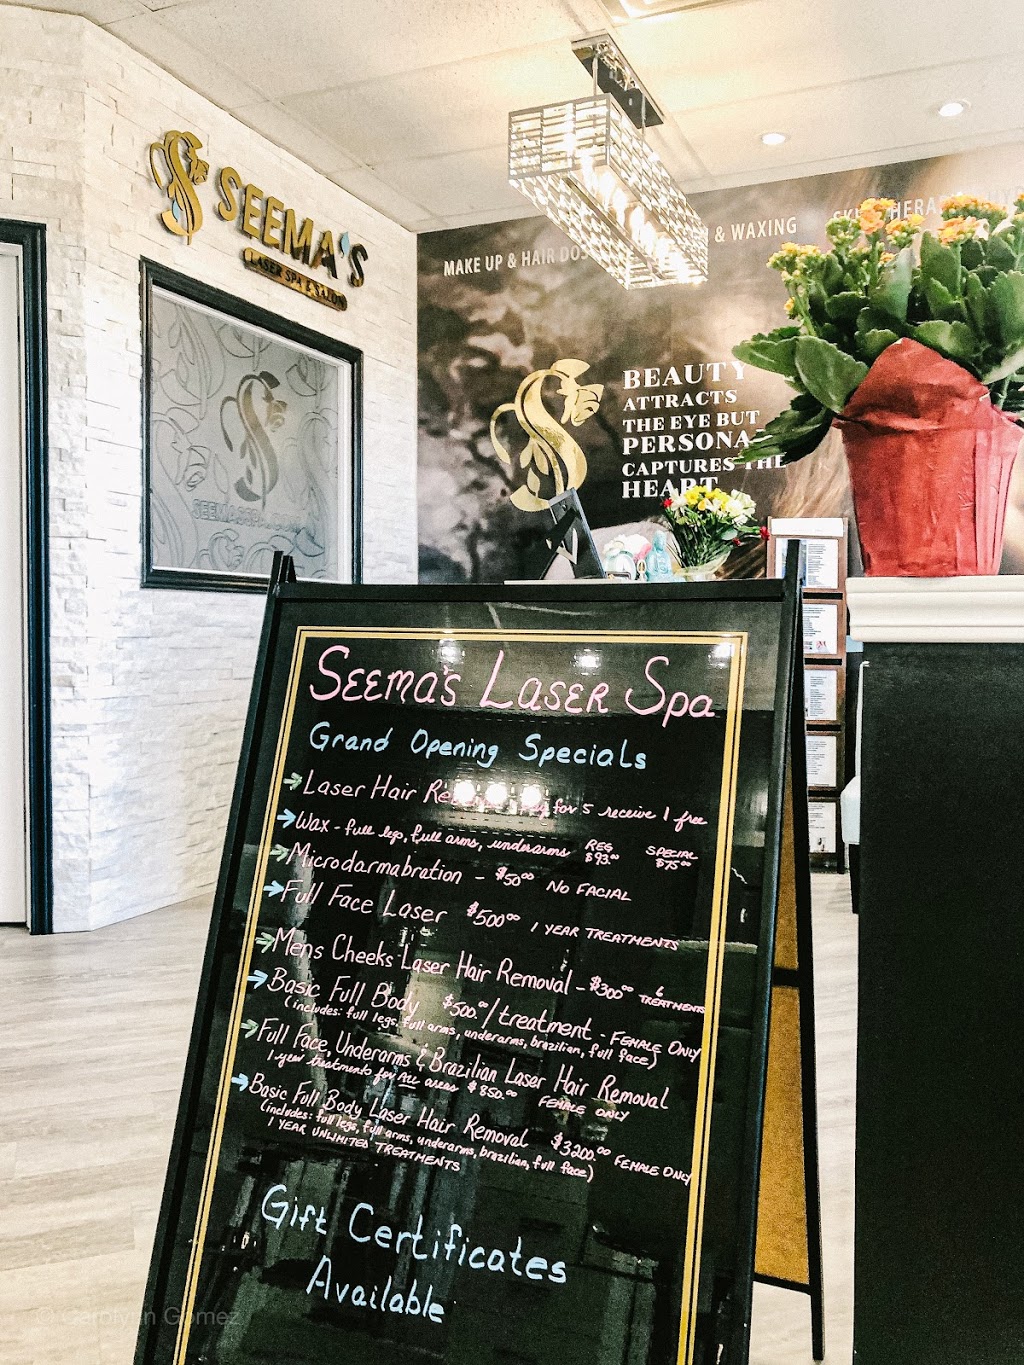 SEEMA'S
LASER SPA & SALON
SEEMASSPA.COM
MAKE UP & HAIR DOS
& WAXING
SKIN THERAPY
BEAUTY
ATTRACTS
THE EYE BUT
PERSONA
CAPTURES THE
HEART
SEEMA'S LASER Spa
Grand Opening Specials
Laser Hair for 5 receive 1 free
Wax - full legs, full arms, underarms REG $93.00 SPECIAL $75.00
Microdarmabration - $50.00 NO FACIAL
Full Face Laser $500.00 1 YEAR TREATMENTS
Mens Cheeks Laser Hair Removal - $300.00 6 TREATMENTS
Basic Full Body $500.00/treatment - FEMALE ONLY
(includes: full legs, full arms, underarms, brazilian, full face)
Full Face, Underarms & Brazilian Laser Hair Removal
1 year treatments for ALL areas $850.00 FEMALE ONLY
Basic Full Body Laser Hair Removal $3200.00 FEMALE ONLY
(includes: full legs, full arms, underarms, brazilian, full face)
1 YEAR UNLIMITED TREATMENTS
Gift Certificates
Available
© Carolynn Gomez